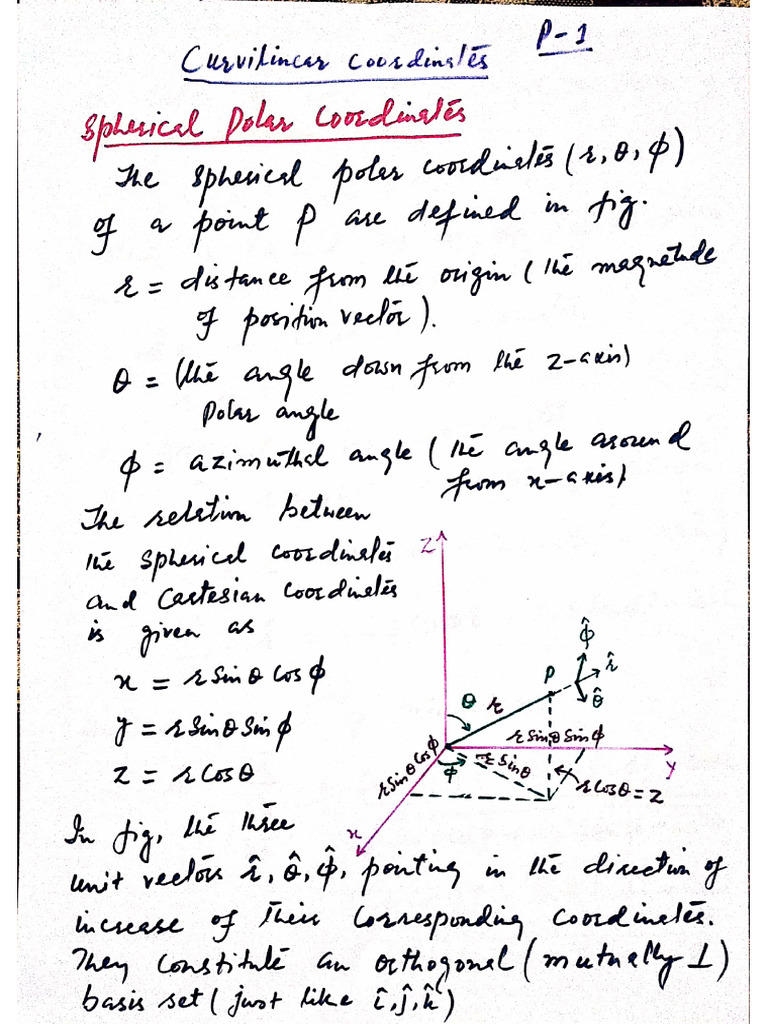 P-1
Curvilinear Coordinates
Spherical Polar Coordinates
The spherical polar coordinates (r, θ, ϕ)
of a point P are defined in fig.
r = distance from the origin (the magnetude
of position vector).
θ = (the angle down from the z-axis)
Polar angle
ϕ = azimuthal angle (the angle around
from x-axis)
The relation between
the spherical coordinates
and Cartesian coordinates
is given as
x = r Sinθ Cosϕ
y = r Sinθ Sinϕ
z = r Cosθ
Z
ϕ̂
r̂
P
θ̂
θ r
r Sinθ Sinϕ
r Sinθ Cosϕ
ϕ
r Sinθ
y
r Cosθ = z
x
In fig, the three
unit vectors r̂, θ̂, ϕ̂, pointing in the direction of
increase of their corresponding coordinates.
They constitute an orthogonal (mutually ⊥)
basis set (just like î, ĵ, k̂)